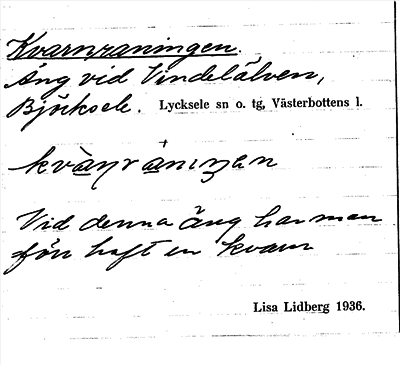 Kvarnraningen.
Äng vid Vindelälven,
Björksele. Lycksele sn o. tg, Västerbottens l.
Vid denna äng har man
förr haft en kvarn
Lisa Lidberg 1936.